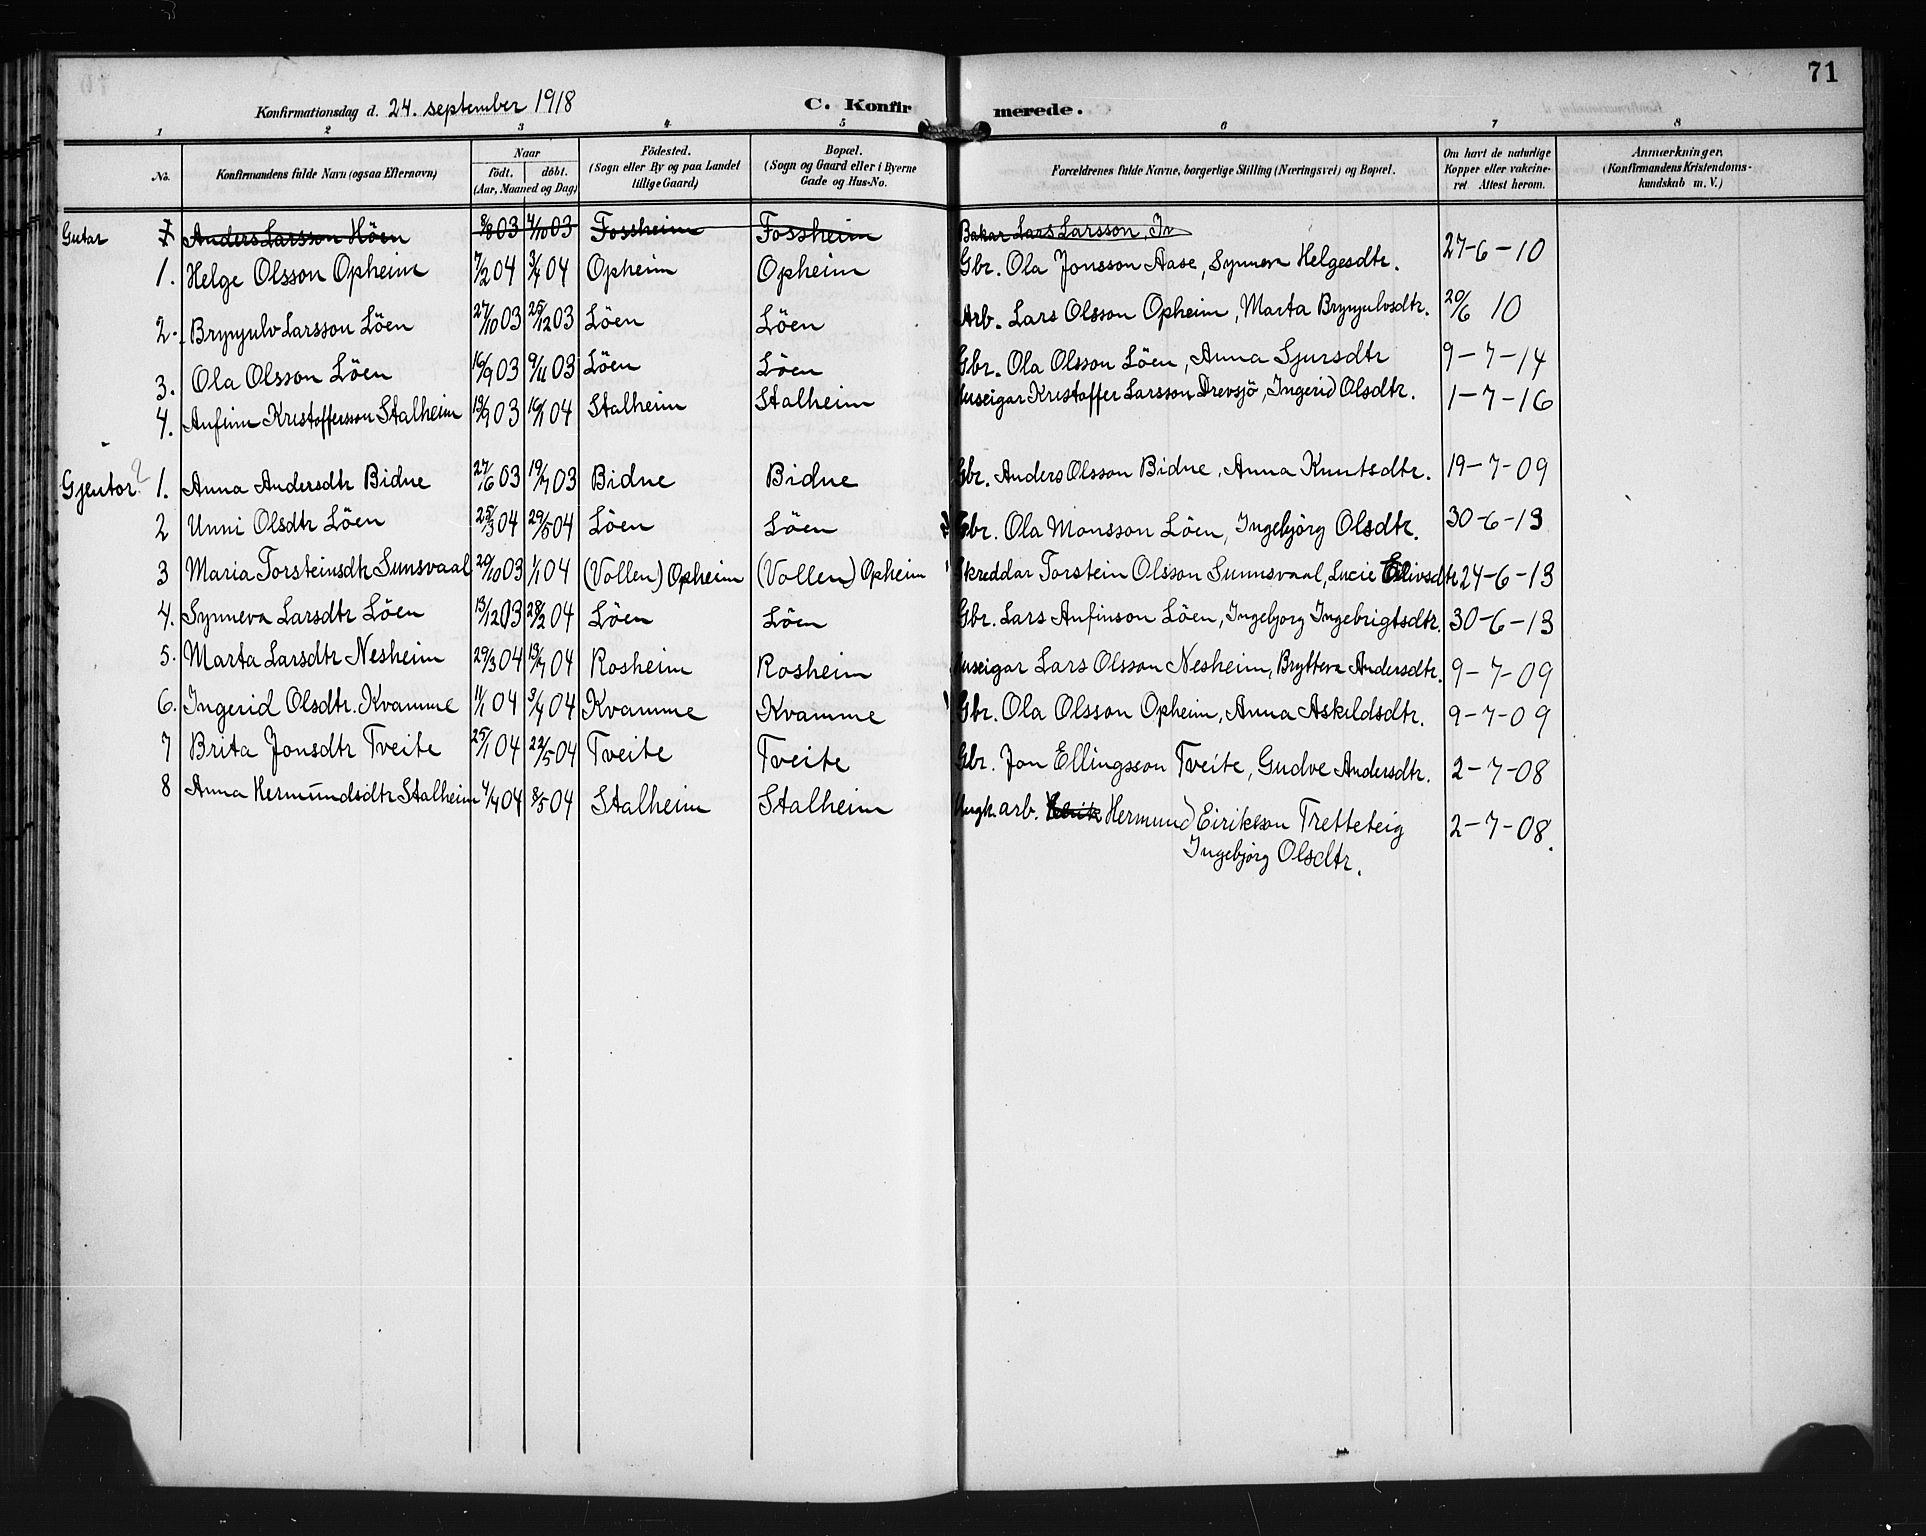 71
Konfirmationsdag d. 24. september 1918 C. Konfirmerede.
1 2 3 4 5 6 7 8
No. Konfirmandens fulde Navn (ogsaa Efternavn) Naar födt. döbt. (Aar, Maaned og Dag) Födested. (Sogn eller By og paa Landet tillige Gaard) Bopæl. (Sogn og Gaard eller i Byerne Gade og Hus-No. Forældrenes fulde Navne, borgerlige Stilling (Næringsvei) og Bopæl. Om havt de naturlige Kopper eller vakcineret. Attest herom. Anmærkninger. (Konfirmandens Kristendomskundskab m. V.)
Gutar 1 Anders Larsson Höen 8/8 03 4/10 03 Fossheim Fossheim Bakar Lars Larsson, In
1. Helge Olsson Opheim 7/2 04 3/4 04 Opheim Opheim Gbr. Ola Jonsson Aase, Synneva Helgesdtr. 27-6-10
2. Brynjulv Larsson Löen 27/10 03 25/12 03 Löen Löen Arb. Lars Olsson Opheim, Marta Brynjulvsdtr. 20/6 10
3. Ola Olsson Löen 16/9 03 9/11 03 Löen Löen Gbr. Ola Olsson Löen, Anna Sjursdtr 9-7-14
4. Anfinn Kristoffersson Stalheim 19/9 03 16/1 04 Stalheim Stalheim Huseigar Kristoffer Larsson Drevsjö, Ingerid Olsdtr. 1-7-16
Gjentor? 1. Anna Andersdtr Bidne 27/6 03 19/7 03 Bidne Bidne Gbr. Anders Olsson Bidne, Anna Knutsdtr. 19-7-09
2 Unni Olsdtr Löen 25/3 04 29/5 04 Löen Löen Gbr. Ola Monsson Löen, Ingebjörg Olsdtr. 30-6-13
3 Maria Torsteinsdtr Sunnsvaal 20/10 03 1/1 04 (Vollen) Opheim (Vollen) Opheim Skreddar Torstein Olsson Sunnsvaal, Lucie Eilivsdtr 24-6-13
4. Synneva Larsdtr Löen 13/12 03 28/2 04 Löen Löen Gbr. Lars Anfinson Löen, Ingebjorg Ingebrigtsdtr. 30-6-13
5. Marta Larsdtr Nesheim 29/3 04 13/7 04 Rosheim Rosheim Huseigar Lars Olsson Nesheim, Bryteva Andersdtr. 9-7-09
6. Ingerid Olsdtr. Kvamme 11/1 04 3/4 04 Kvamme Kvamme Gbr. Ola Olsson Opheim, Anna Askildsdtr. 9-7-09
7 Brita Jonsdtr Tveite 25/1 04 22/5 04 Tveite Tveite Gbr. Jon Ellingsson Tveite, Gudve Andersdtr. 2-7-08
8 Anna Hermundsdtr Stalheim 4/4 04 8/5 04 Stalheim Stalheim arb. Hermund Eirikson Tretteteig 2-7-08.
Ingebjörg Olsdtr.